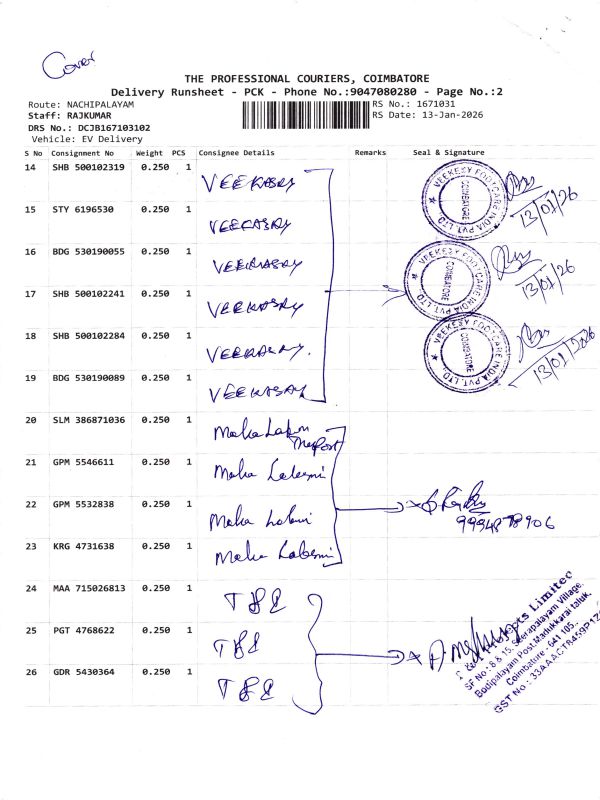 Cover
THE PROFESSIONAL COURIERS, COIMBATORE
Delivery Runsheet - PCK - Phone No.:9047080280 - Page No.:2
Route: NACHIPALAYAM
Staff: RAJKUMAR
DRS No.: DCJB167103102
Vehicle: EV Delivery
RS No.: 1671031
RS Date: 13-Jan-2026
S No Consignment No Weight PCS Consignee Details Remarks Seal & Signature
14 SHB 500102319 0.250 1 VEEKASRY
15 STY 6196530 0.250 1 VEEKASRY
16 BDG 530190055 0.250 1 VEEKASRY
17 SHB 500102241 0.250 1 VEEKASRY
18 SHB 500102284 0.250 1 VEEKASRY.
19 BDG 530190089 0.250 1 VEEKASRY
VEEKESY FOOTCARE INDIA PVT. LTD.
COIMBATORE
13/01/26
VEEKESY FOOTCARE INDIA PVT. LTD.
COIMBATORE
13/01/26
VEEKESY FOOTCARE INDIA PVT. LTD.
COIMBATORE
13/01/2026
20 SLM 386871036 0.250 1 Maha
21 GPM 5546611 0.250 1 Maha
22 GPM 5532838 0.250 1 Maha
23 KRG 4731638 0.250 1 Maha
24 MAA 715026813 0.250 1
25 PGT 4768622 0.250 1
26 GDR 5430364 0.250 1
Limited
SF No : 8 & 15, Seerapalayam Village,
Bodipalayam Post, Madukkarai taluk,
Coimbatore - 641 105.
GST No :